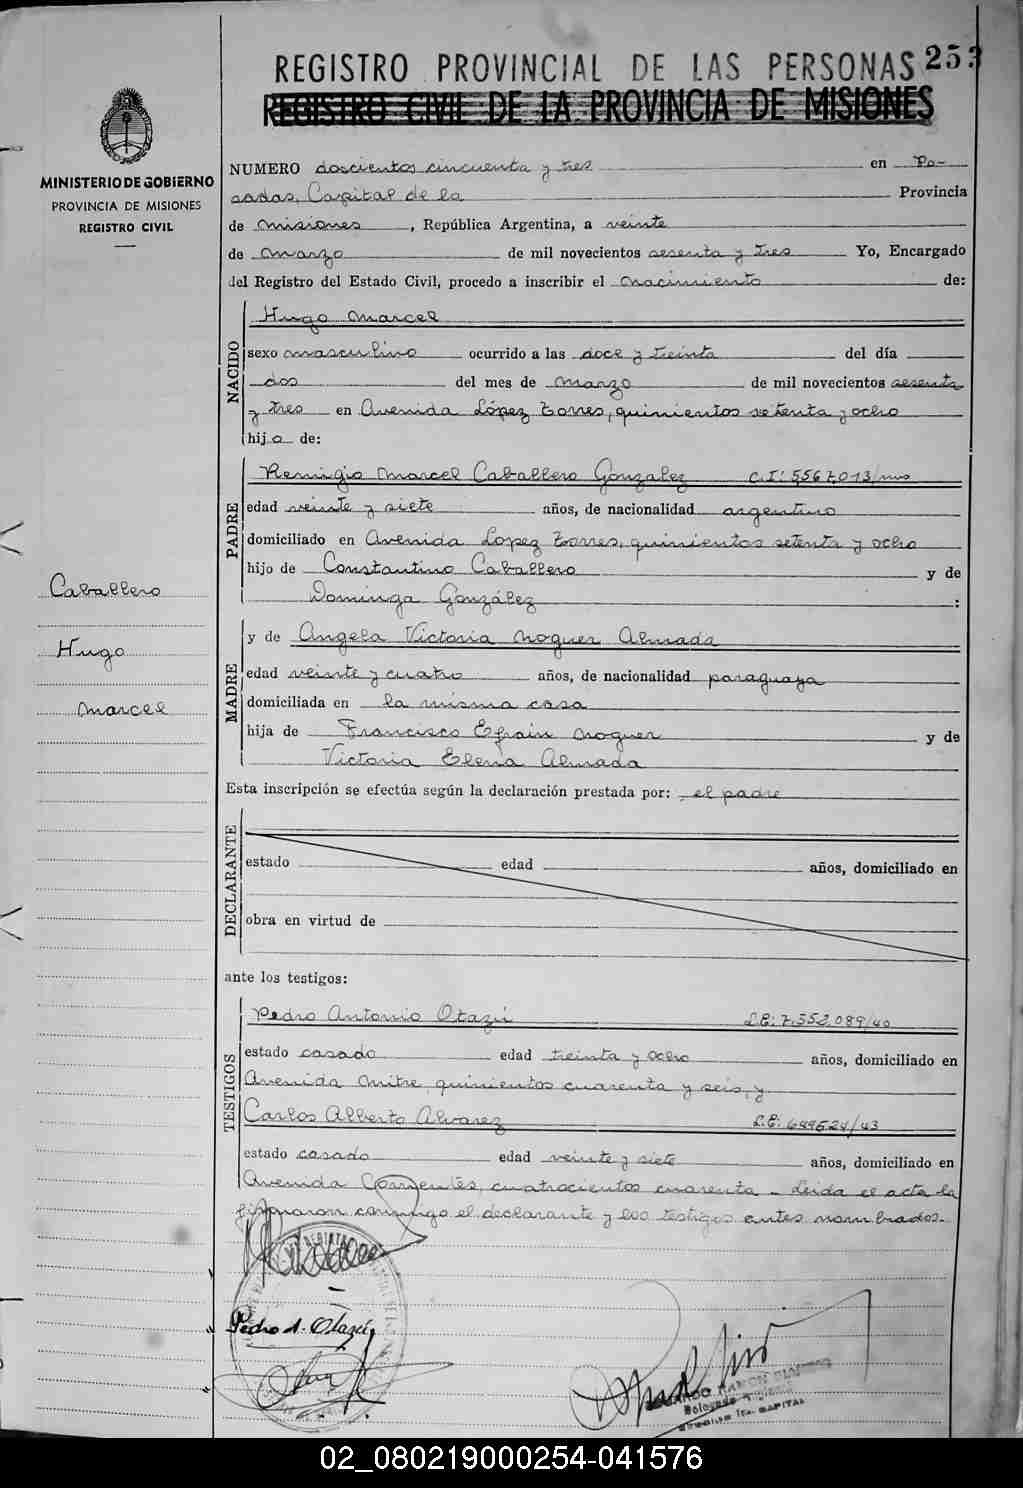 253
REGISTRO PROVINCIAL DE LAS PERSONAS
REGISTRO CIVIL DE LA PROVINCIA DE MISIONES
MINISTERIO DE GOBIERNO
PROVINCIA DE MISIONES
REGISTRO CIVIL
Caballero
Hugo
Marcel
NUMERO doscientos cincuenta y tres en Po-
sadas, Capital de la Provincia
de Misiones, República Argentina, a veinte
de marzo de mil novecientos sesenta y tres Yo, Encargado
del Registro del Estado Civil, procedo a inscribir el nacimiento de:
NACIDO
Hugo Marcel
sexo masculino ocurrido a las doce y treinta del día
dos del mes de marzo de mil novecientos sesenta
y tres en Avenida López Torres, quinientos setenta y ocho
hijo de:
PADRE
Remigio Marcel Caballero Gonzalez C.I: 5567.013/mis
edad veinte y siete años, de nacionalidad argentino
domiciliado en Avenida Lopez Torres, quinientos setenta y ocho
hijo de Constantino Caballero y de
Dominga González :
MADRE
y de Angela Victoria Noguer Almada
edad veinte y cuatro años, de nacionalidad paraguaya
domiciliada en la misma casa
hija de Francisco Efrain Noguer y de
Victoria Elena Almada
Esta inscripción se efectúa según la declaración prestada por: el padre
DECLARANTE
estado edad años, domiciliado en
obra en virtud de
ante los testigos:
TESTIGOS
Pedro Antonio Otazú L.E: 7.552.089/40
estado casado edad treinta y ocho años, domiciliado en
Avenida Mitre, quinientos cuarenta y seis, y
Carlos Alberto Alvarez L.E: 649524/43
estado casado edad veinte y siete años, domiciliado en
Avenida Corrientes, cuatrocientos cuarenta - Leida el acta la
firmaron conmigo el declarante y los testigos antes nombrados.-
Pedro A. Otazú
02_080219000254-041576